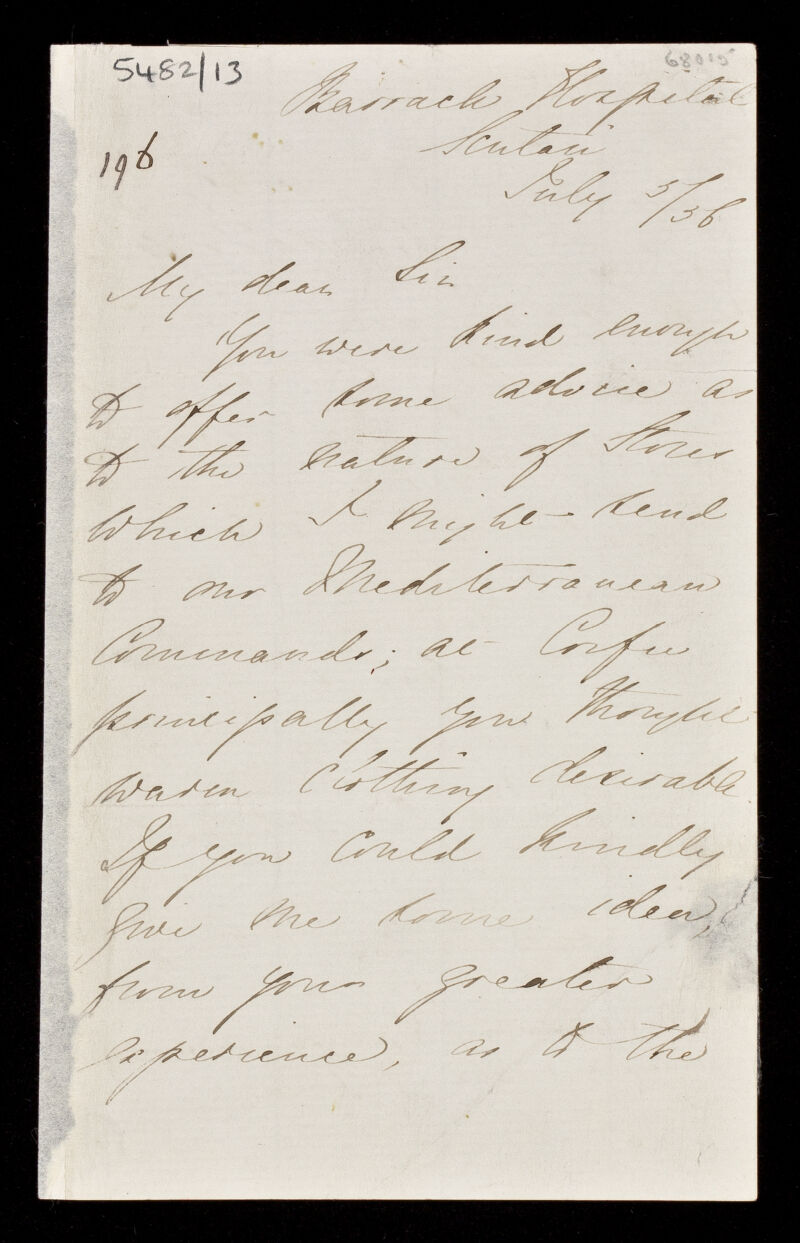 5482/13
68015
196
Barrack Hospital
Scutari
July 5/56
My dear Sir
You were kind enough
to offer some advice as
to the nature of Stores
which I might send
to our Mediterranean
Commands; at Corfu
principally you thought
warm clothing desirable
If you could kindly
give me some idea,
from your greater
experience, as to the